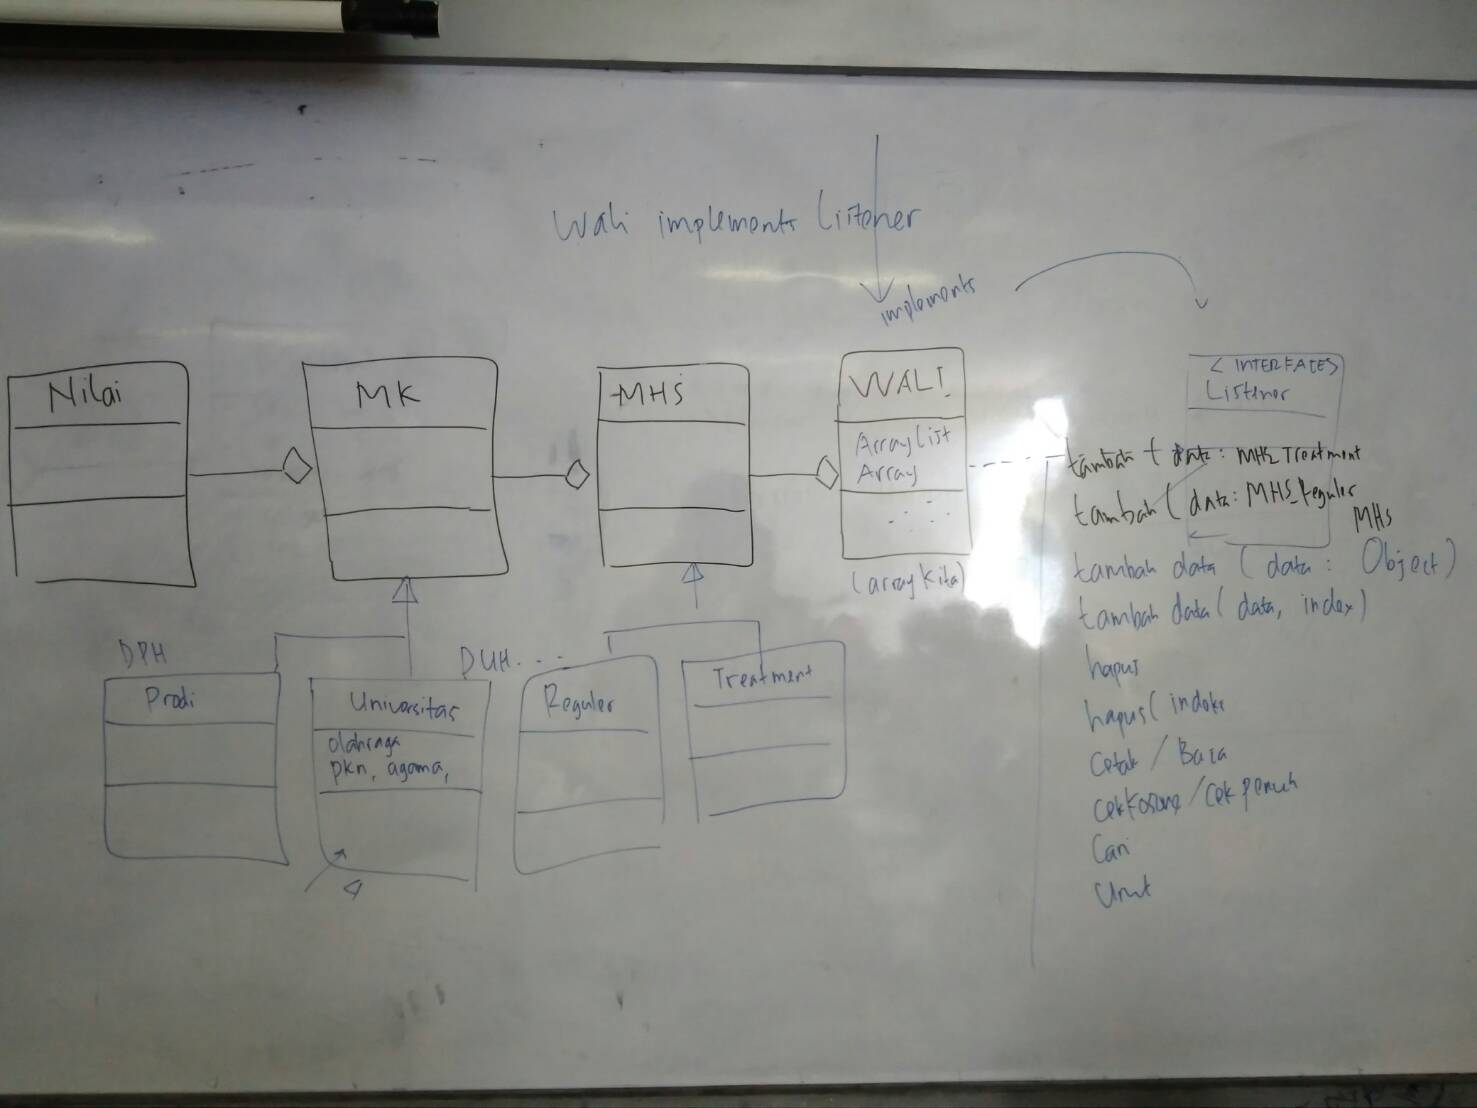 Wali implements Listener
implements
Nilai
MK
MHS
WALI
ArrayList
Array
(array kita)
< INTERFACES
Listener
tambah ( data : MHS Treatment
tambah ( data : MHS_Reguler
MHS
tambah data ( data : Object )
tambah data ( data, index )
hapus
hapus ( indeks
Cetak / Baca
cekKosong / cek penuh
Cari
Urut
DPH
Prodi
DUH....
Universitas
olahraga
pkn, agama,
Reguler
Treatment